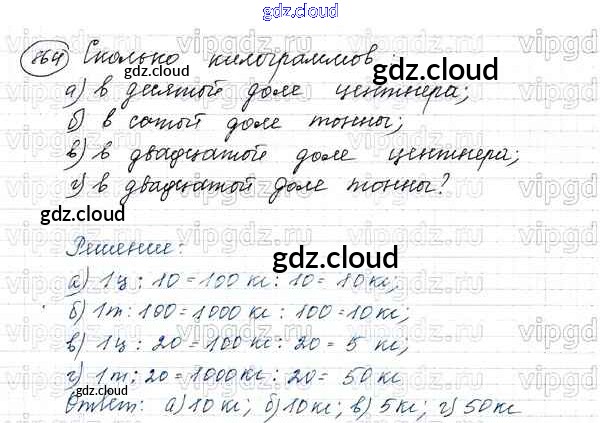 gdz.cloud
764 Сколько килограммов
gdz.cloud
а) в десятой доле центнера;
б) в сотой доле тонны;
в) в двадцатой доле центнера;
г) в двадцатой доле тонны?
gdz.cloud
Решение:
gdz.cloud
а) 1ц : 10 = 100 кг : 10 = 10 кг;
б) 1т : 100 = 1000 кг : 100 = 10 кг;
в) 1ц : 20 = 100 кг : 20 = 5 кг;
г) 1т : 20 = 1000 кг : 20 = 50 кг
gdz.cloud
Ответ: а) 10 кг; б) 10 кг; в) 5 кг; г) 50 кг
gdz.cloud